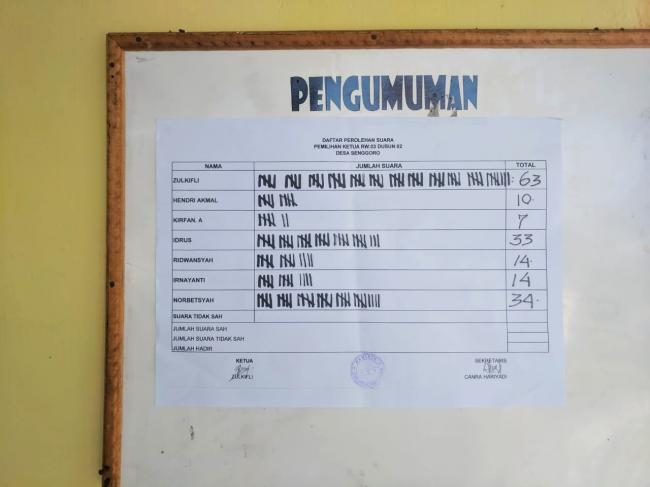 PENGUMUMAN
DAFTAR PEROLEHAN SUARA
PEMILIHAN KETUA RW.03 DUSUN 02
DESA SENGGORO
NAMA JUMLAH SUARA TOTAL
ZULKIFLI 63
HENDRI AKMAL 10
KIRFAN. A 7
IDRUS 33
RIDWANSYAH 14
IRNAYANTI 14
NORBETSYAH 34
SUARA TIDAK SAH
JUMLAH SUARA SAH
JUMLAH SUARA TIDAK SAH
JUMLAH HADIR
KETUA SEKRETARIS
ZULKIFLI CANRA HARIYADI